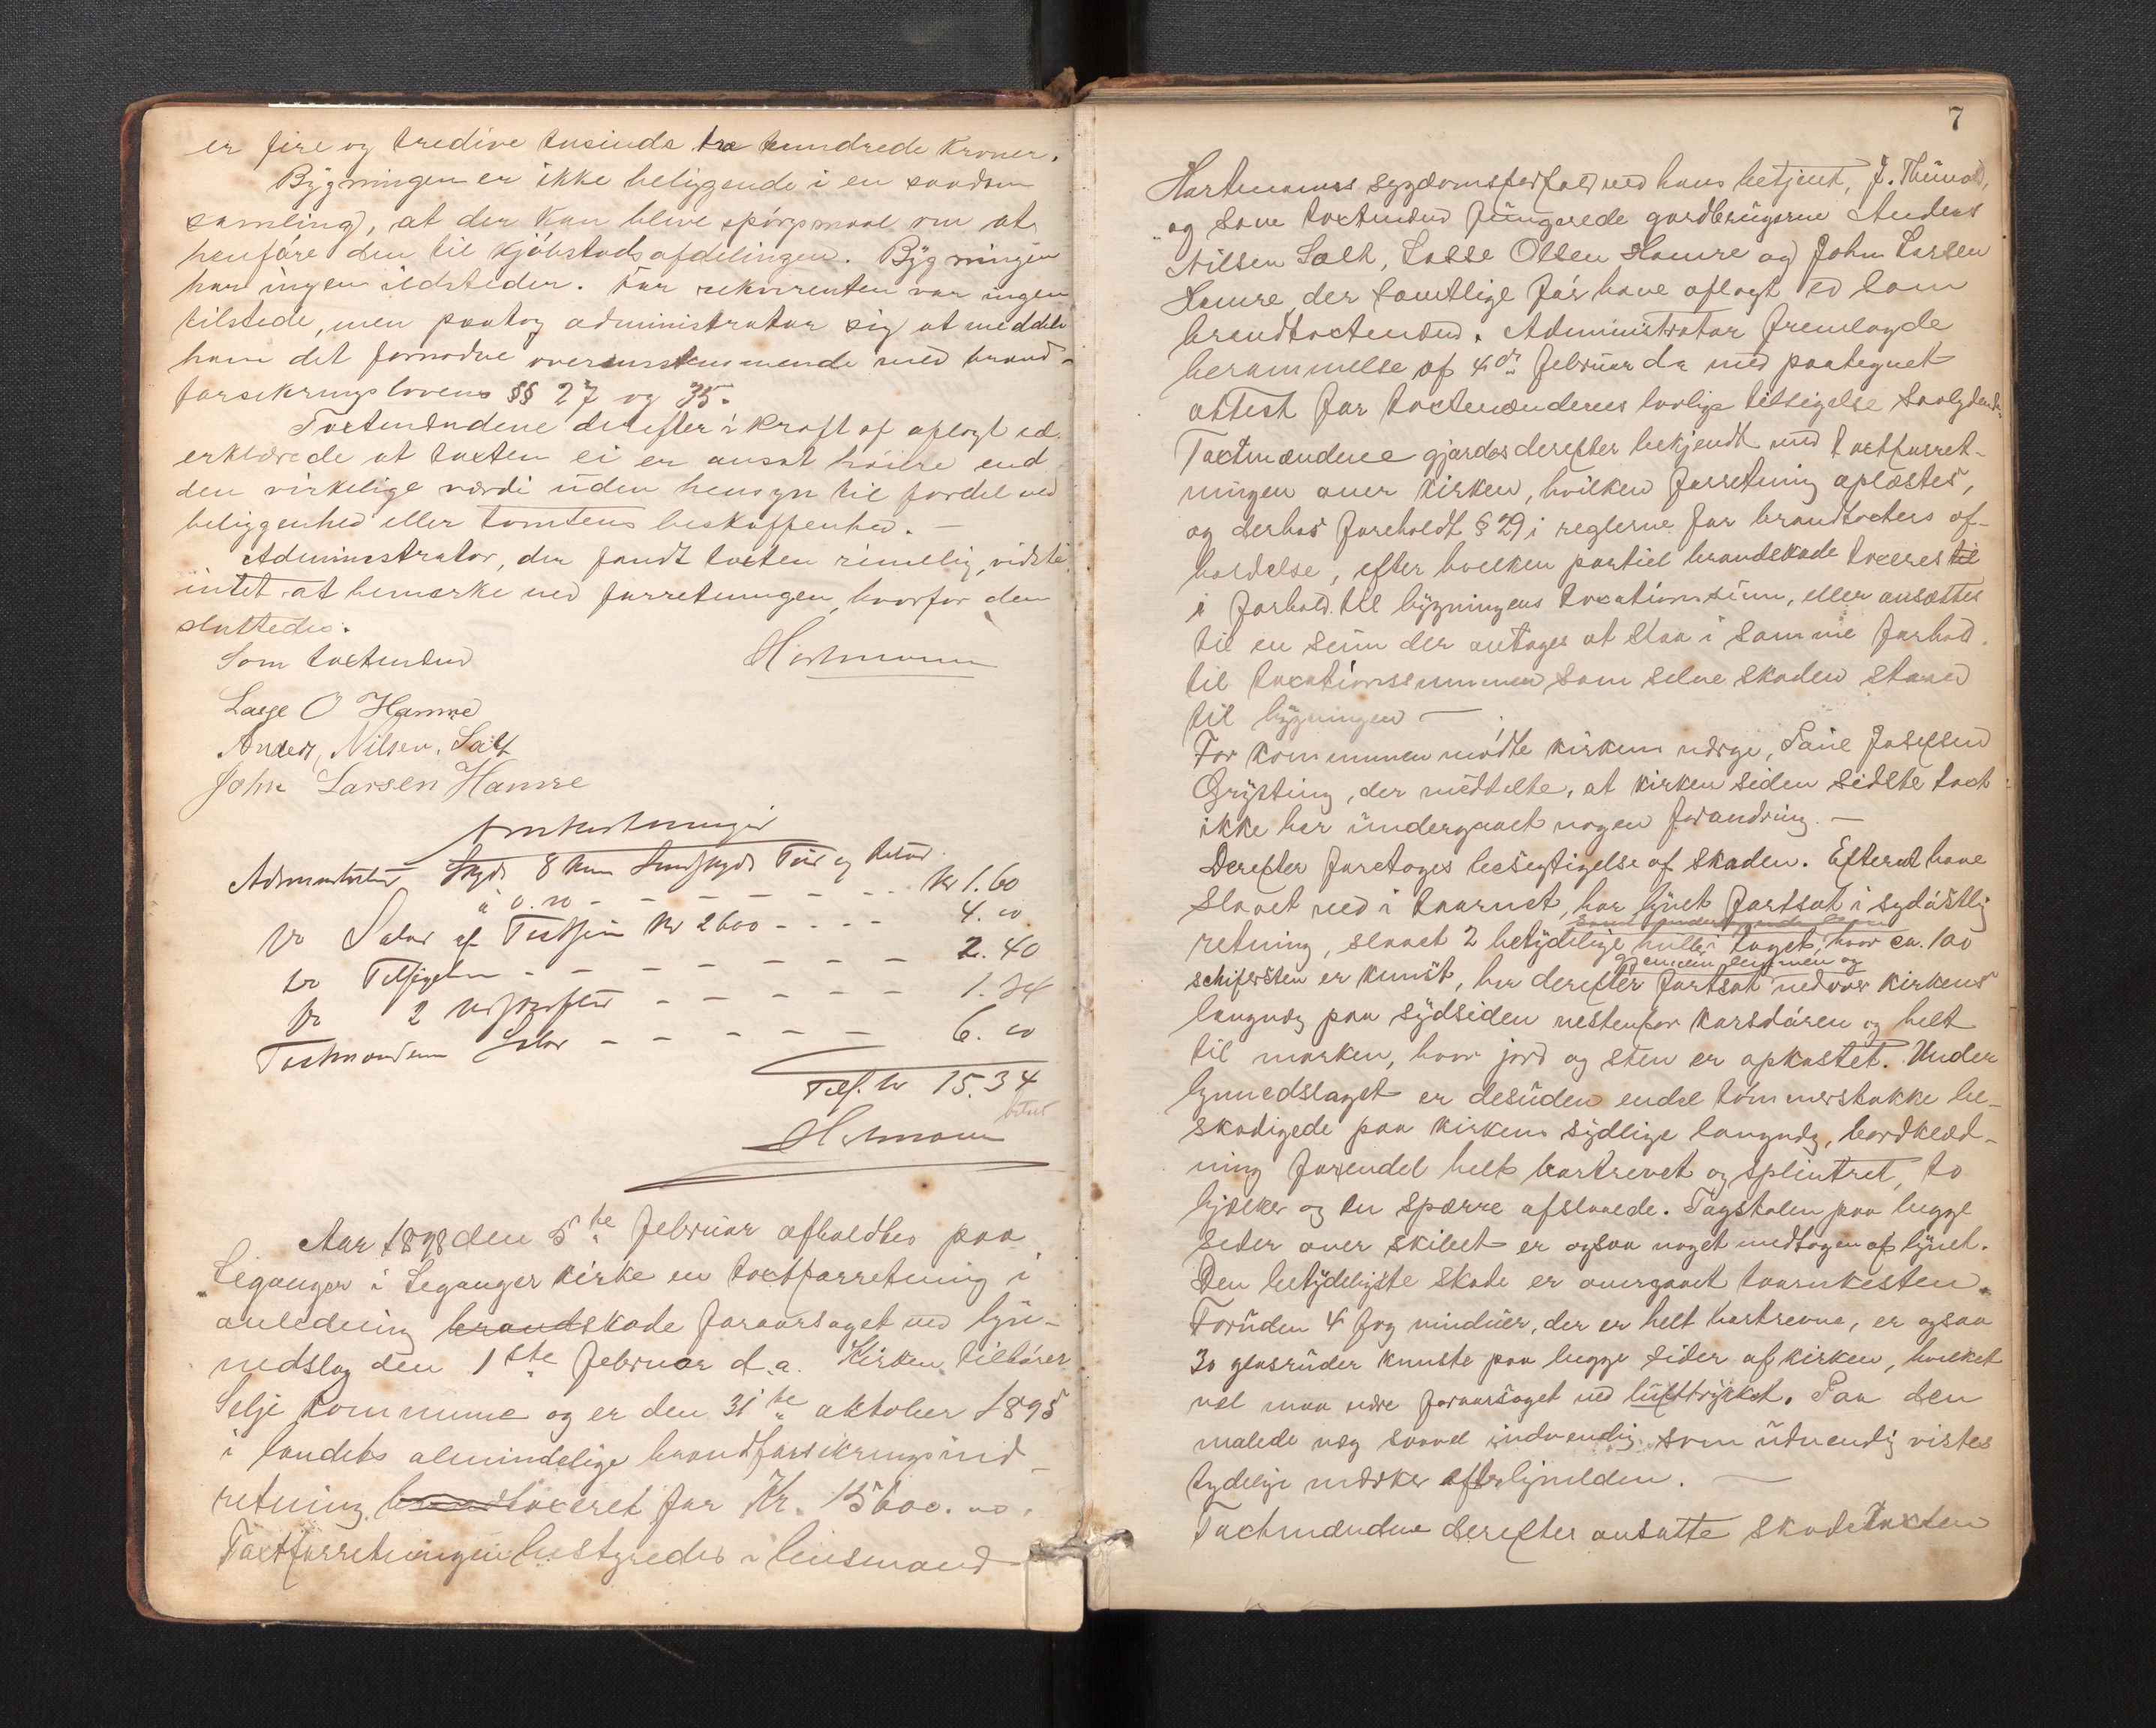 er fire og tredive tusinde tre hundrede kroner.
Bygningen er ikke beliggende i en saadan
samling, at der kan blive spörgsmaal om at
henföre den til kjöbstadsafdelingen. Bygningen
har ingen ildsteder. For rekvirenten var ingen
tilstede, men paatog administrator sig at meddele
ham det fornødne overensstemmende med brand-
forsikringslovens §§ 27 og 35.
Taxtmændene derefter i kraft af aflagt ed
erklærede at taxten ei er ansat höiere end
den virkelige værdi uden hensyn til fordel ved
beliggenhed eller tomtens beskaffenhed. —
Administrator, der fandt taxten rimelig, vidste
intet at bemærke ved forretningen, hvorfor den
sluttedes.
Som taxtmænd
Hartmann
Lasse O Hamre
Anders Nilsen Salt
John Larsen Hamre
Administrator Skyds 8 km
à 0.20 - - - - - - - kr 1.60
Do Salær af Taxtsum Kr 2600 - - - - 4.00
Do Tilsigelse - - - - - - - 2.40
Do 2 - - - - - - 1.34
Taxtmændene Salær - - - - - 6.00
Tils. kr 15.34
Hartmann
Aar 1898 den 5te februar afholdtes paa
Leganger i Leganger kirke en taxtforretning i
anledning brandskade foraarsaget ved lyn-
nedslag den 1ste februar d.a. Kirken tilhörer
Selje kommune og er den 31te oktober 1895
i landets almindelige brandforsikringsind-
retning brandtaxeret for Kr. 15600.00.
Taxtforretningen bestyredes i lensmand
7
Hartmanns sygdomsforfald ved hans betjent, J.
og som taxtmænd fungerede gardbrugerne Anders
Nilsen Salt, Lasse Olsen Hamre og John Larsen
Hamre der samtlige för have aflagt ed som
brandtaxtmænd. Administrator fremlagde
berammelse af 4de februar d.a. med paategnet
attest for taxtmændenes lovlige tilsigelse
Taxtmændene gjordes derefter bekjendt med taxtforret-
ningen over kirken, hvilken forretning oplæstes,
og derhos foreholdt § 29 i reglerne for brandtaxters af-
holdelse, efter hvilken partiel brandskade taxeres til
i forhold til bygningens taxationssum, eller ansættes
til en sum der antages at staa i samme forhold
til taxationssummen som selve skaden staaer
til bygningen —
For kommunen mödte kirkens værge, Paul Josefsen
Grytting, der meddelte, at kirken siden sidste taxt
ikke har undergaaet nogen forandring. —
Derefter foretoges besigtigelse af skaden. Efterat have
slaaet ned i taarnet, har lynet fortsat i sydöstlig
retning, slaaet 2 betydelige huller i taget, hvor ca. 100
gjennem lemmen og
schifersten er knust, har derefter fortsat nedover kirkens
langvæg paa sydsiden vestenfor korsdören og helt
til marken, hvor jord og sten er opkastet. Under
lynnedslaget er desuden endel tömmerstokke be-
skadigede paa kirkens sydlige langvæg, bordklæd-
ning forendel helt bortrevet og splintret, to
bjælker og en spærre afslaaede. Tagstolen paa begge
sider over skibet er ogsaa noget medtagen af lynet.
Den betydeligste skade er overgaaet taarnkesten.
Foruden 4 fag vinduer, der er helt bortrevne, er ogsaa
30 glasruder knuste paa begge sider af kirken, hvilket
vel maa være foraarsaget ved lufttrykket. Paa den
malede væg saavel indvendig som udvendig vistes
tydelige mærker efter lynilden. —
Taxtmændene derefter ansatte skadetaxten